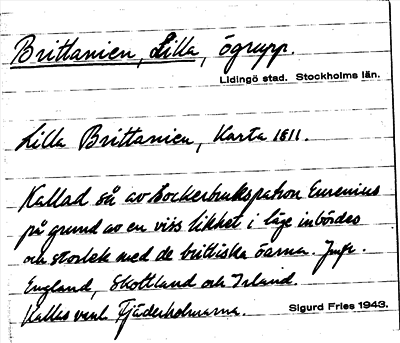 Brittanien, Lilla, ögrupp.
Lidingö stad. Stockholms län.
Lilla Brittanien, Karta 1811.
Kallad så av sockerbrukspatron Eurenius
på grund av en viss likhet i läge inbördes
och storlek med de brittiska öarna. Jmfr.
England, Skottland och Irland.
Kallas vanl. Fjäderholmarna.
Sigurd Fries 1943.